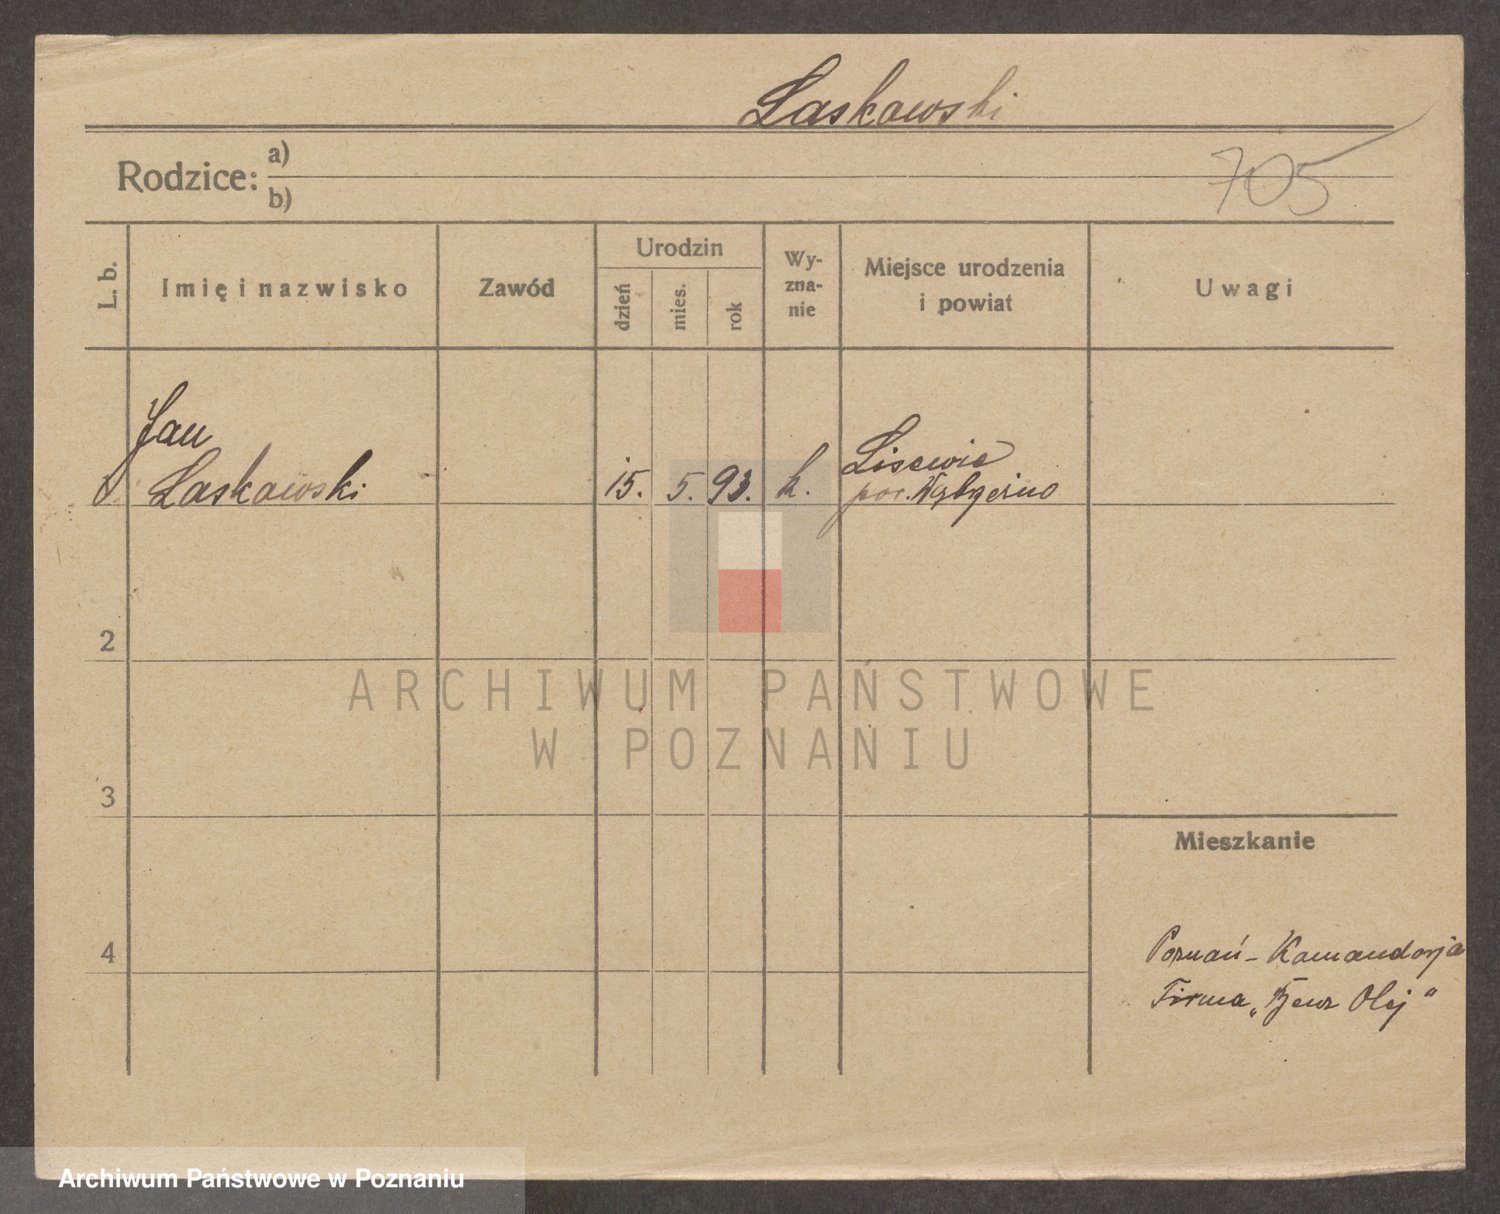 Laskowski
Rodzice: a)
b)
705
L. b.
Imię i nazwisko
Zawód
Urodzin
dzień
mies.
rok
Wy-
zna-
nie
Miejsce urodzenia
i powiat
Uwagi
Jan
Laskowski
15. 5. 93. k.
Lisewie
2
3
4
Mieszkanie
Poznań - Komandorja
Firma „ Olej"
ARCHIWUM PAŃSTWOWE
W POZNANIU
Archiwum Państwowe w Poznaniu